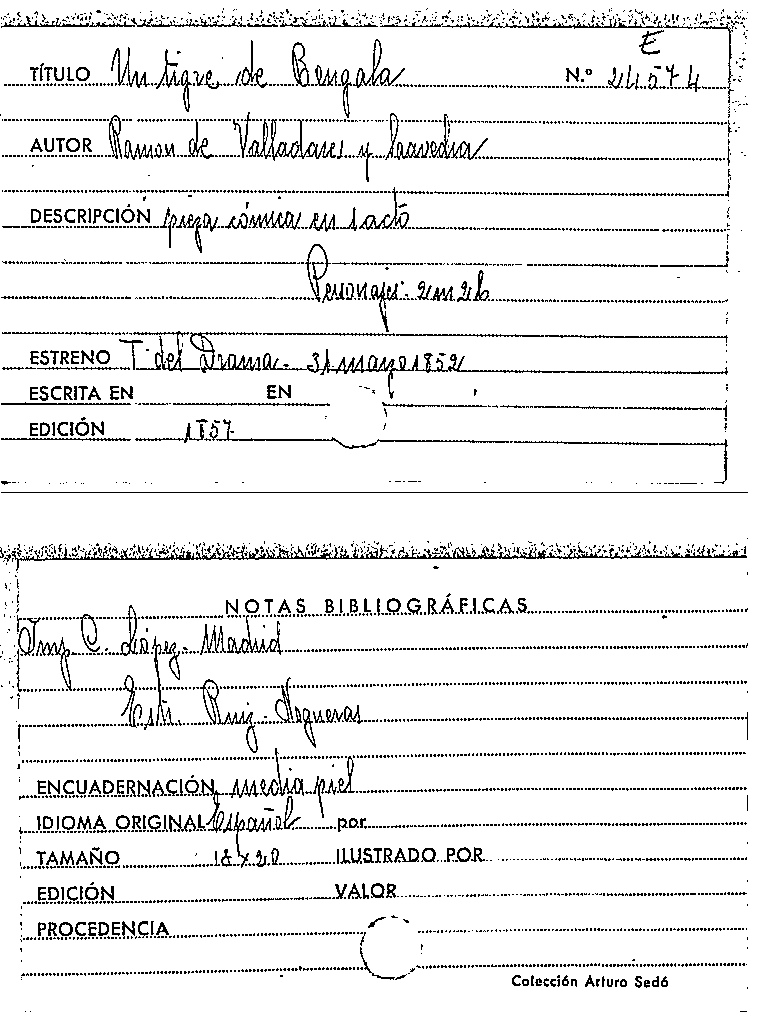 E
TÍTULO Un tigre de Bengala N.º 24574
AUTOR Ramon de Valladares y Saavedra
DESCRIPCIÓN pieza cómica en 1 acto
Personajes: 2m 2h
ESTRENO T. del Drama - 31 marzo 1852
ESCRITA EN EN
EDICIÓN 1857
NOTAS BIBLIOGRÁFICAS
Imp C. López - Madrid
Ruiz - Nogueras
ENCUADERNACIÓN media piel
IDIOMA ORIGINAL Español por
TAMAÑO 18 x 20 ILUSTRADO POR
EDICIÓN VALOR
PROCEDENCIA
Colección Arturo Sedó